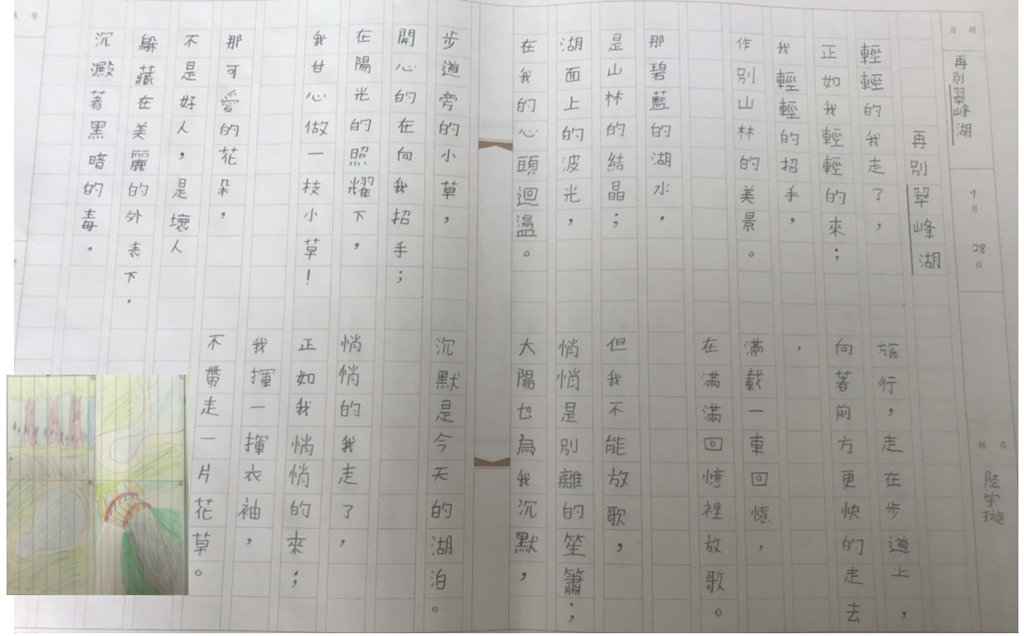 再別翠峰湖
月28日
姓名
陸宇璇
再別翠峰湖
輕輕的我走了，
正如我輕輕的來；
我輕輕的招手，
作別山林的美景。
那碧藍的湖水，
是山林的結晶；
湖面上的波光，
在我的心頭迴盪。
步道旁的小草，
開心的在向我招手；
在陽光的照耀下，
我甘心做一枝小草！
那可愛的花朵，
不是好人，是壞人
躲藏在美麗的外表下．
沉澱著黑暗的毒。
旅行，走在步道上，
向著前方更快的走去
，
滿載一車回憶，
在滿滿回憶裡放歌。
但我不能放歌，
悄悄是別離的笙簫；
大陽也為我沉默，
沉默是今天的湖泊。
悄悄的我走了，
正如我悄悄的來；
我揮一揮衣袖，
不帶走一片花草。